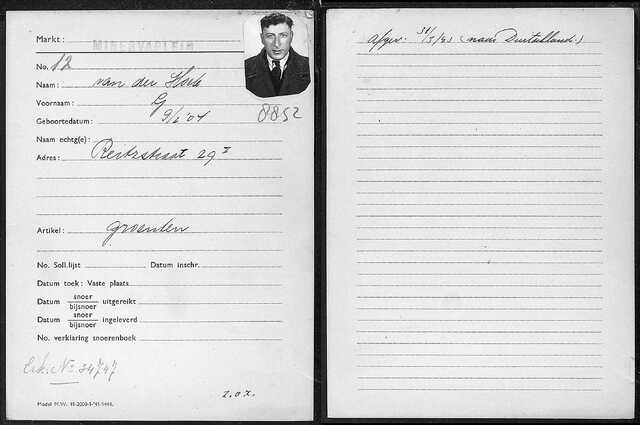 Markt: MINERVAPLEIN
No. 12
Naam: van der Horb
Voornaam: G
Geboortedatum: 9/2'04
8852
Naam echtg(e):
Adres: Reitzstraat 29 I
Artikel: groenten
No. Soll.lijst Datum inschr.
Datum toek: Vaste plaats
Datum snoer uitgereikt
bijsnoer
Datum snoer ingeleverd
bijsnoer
No. verklaring snoerenboek
Erk. No. 34747
Z.O.Z.
Afgev. 31/5/43 (naar Duitschland.)